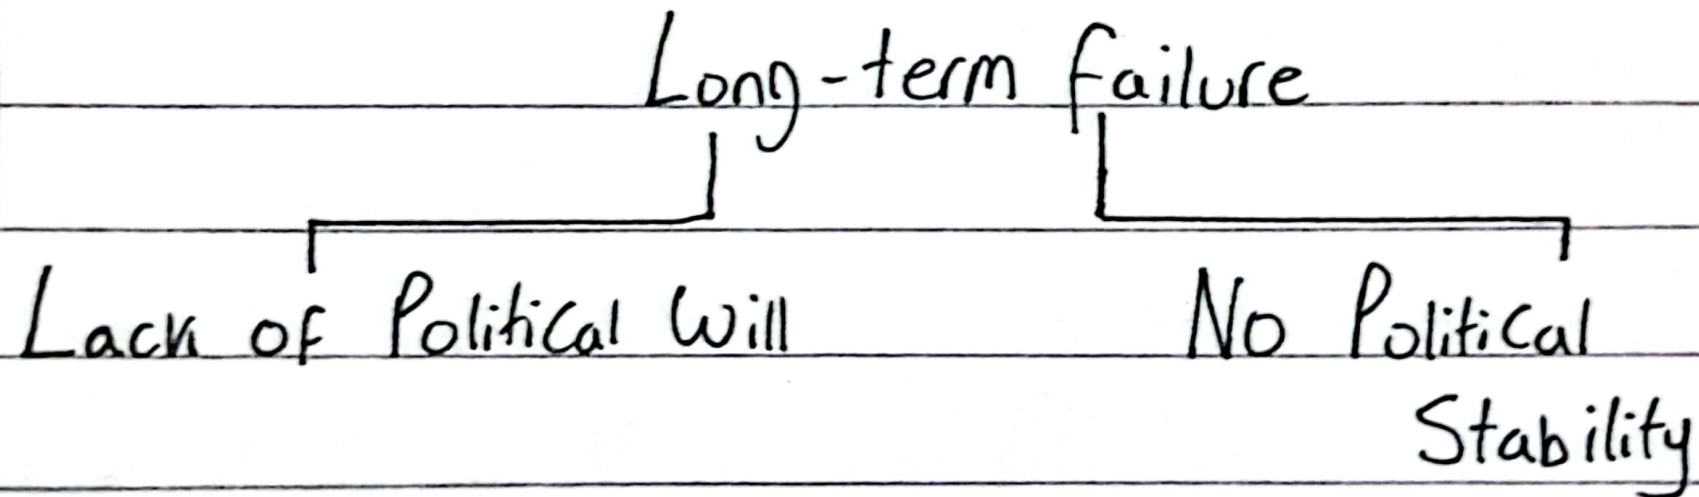 Long-term failure
Lack of Political Will
No Political
Stability